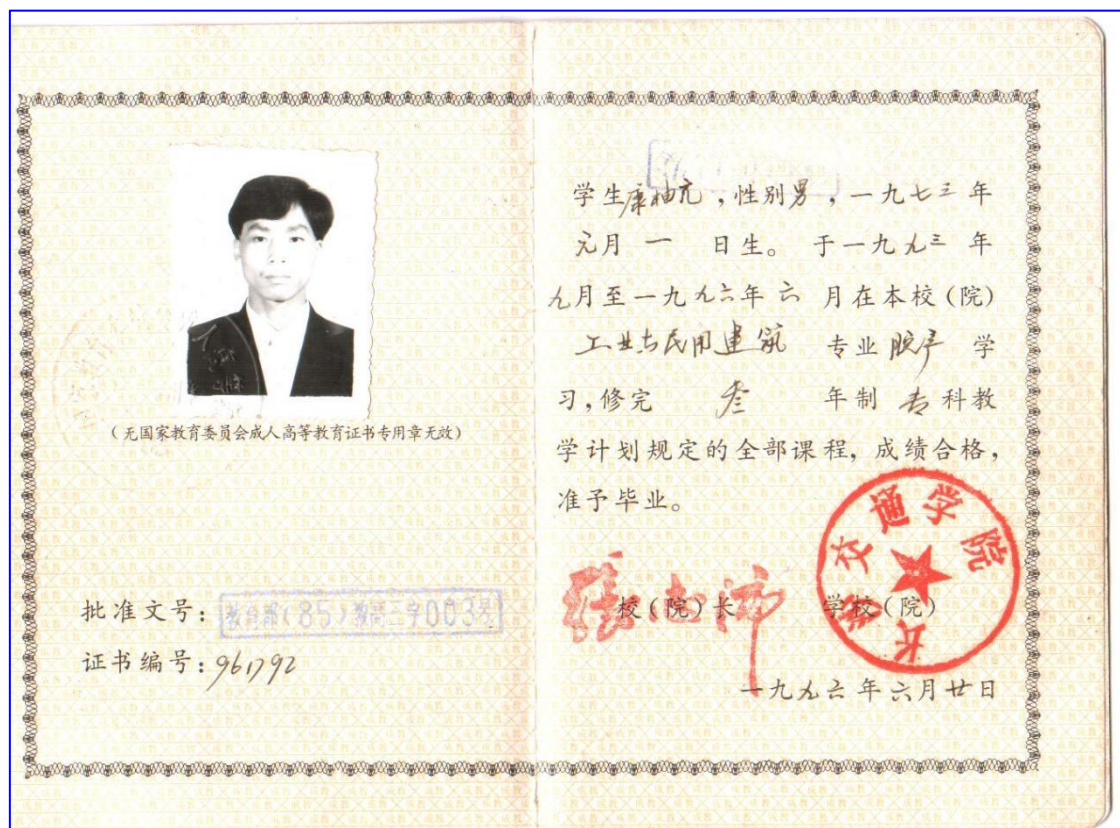 (无国家教育委员会成人高等教育证书专用章无效)
批准文号:教育部(85)教高三字003号
证书编号:961792
学生康柚亢,性别男,一九七三年
元月一日生。于一九九三年
九月至一九九六年六月在本校(院)
工业与民用建筑 专业脱产学
习,修完 叁 年制专科教
学计划规定的全部课程,成绩合格,
准予毕业。
校(院)长 学校(院)
长沙交通学院
一九九六年六月廿日